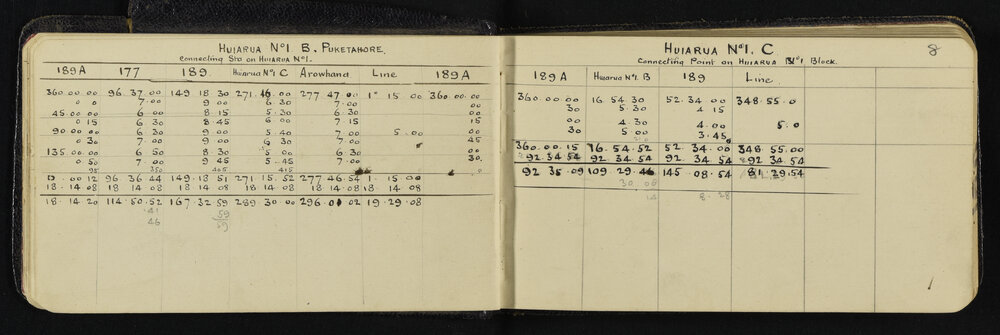 HUIARUA No1 B. PUKETAHORE.
Connecting Stn on HUIARUA No1.
189A 177 189. Huiarua No1 C Arowhana Line 189A
360.00.00 96.37.00 149 18 30 271.16.00 277 47.00 1° 15 00 360.00.00
0 0 7.00 9 00 6 30 7.00 00
45.00.00 6 00 8 15 5.30 6.30 00
0 15 6 30 8 45 6 00 7 15 15
90.00.00 6 30 9 00 5.40 7.00 5.00 00
0 30 7 00 9 00 6 30 7.00 45
135.00.00 6 50 8 30 5 00 6 30 00
0 50 7.00 9 45 5.45 7.00 30.
95 350 405 415
0.00 12 96 36 44 149.18 51 271 15.52 277 46.54 1. 15 00
18.14 08 18 14 08 18 14 08 18 14 08 18 14 08 18.14.08
18.14.20 114.50.52 167.32.59 289.30.00 296.01 02 19.29.08
41 59
46 59
HUIARUA No1. C. 8
Connecting Point on HUIARUA No1 Block.
189A HUIARUA No1. B 189 Line
360.00.00 16.54.30 52.34 00 348.55.0
30 5.30 4 15
00 4.30 4.00 5.0
30 5 00 3.45
360.00.15 16.54.52 52.34.00 348 55.00
92.34 54 92.34 54 92 34 54 92 34.54
92 35.09 109.29.46 145.08.54 81.29.54
30.00
14 8.28